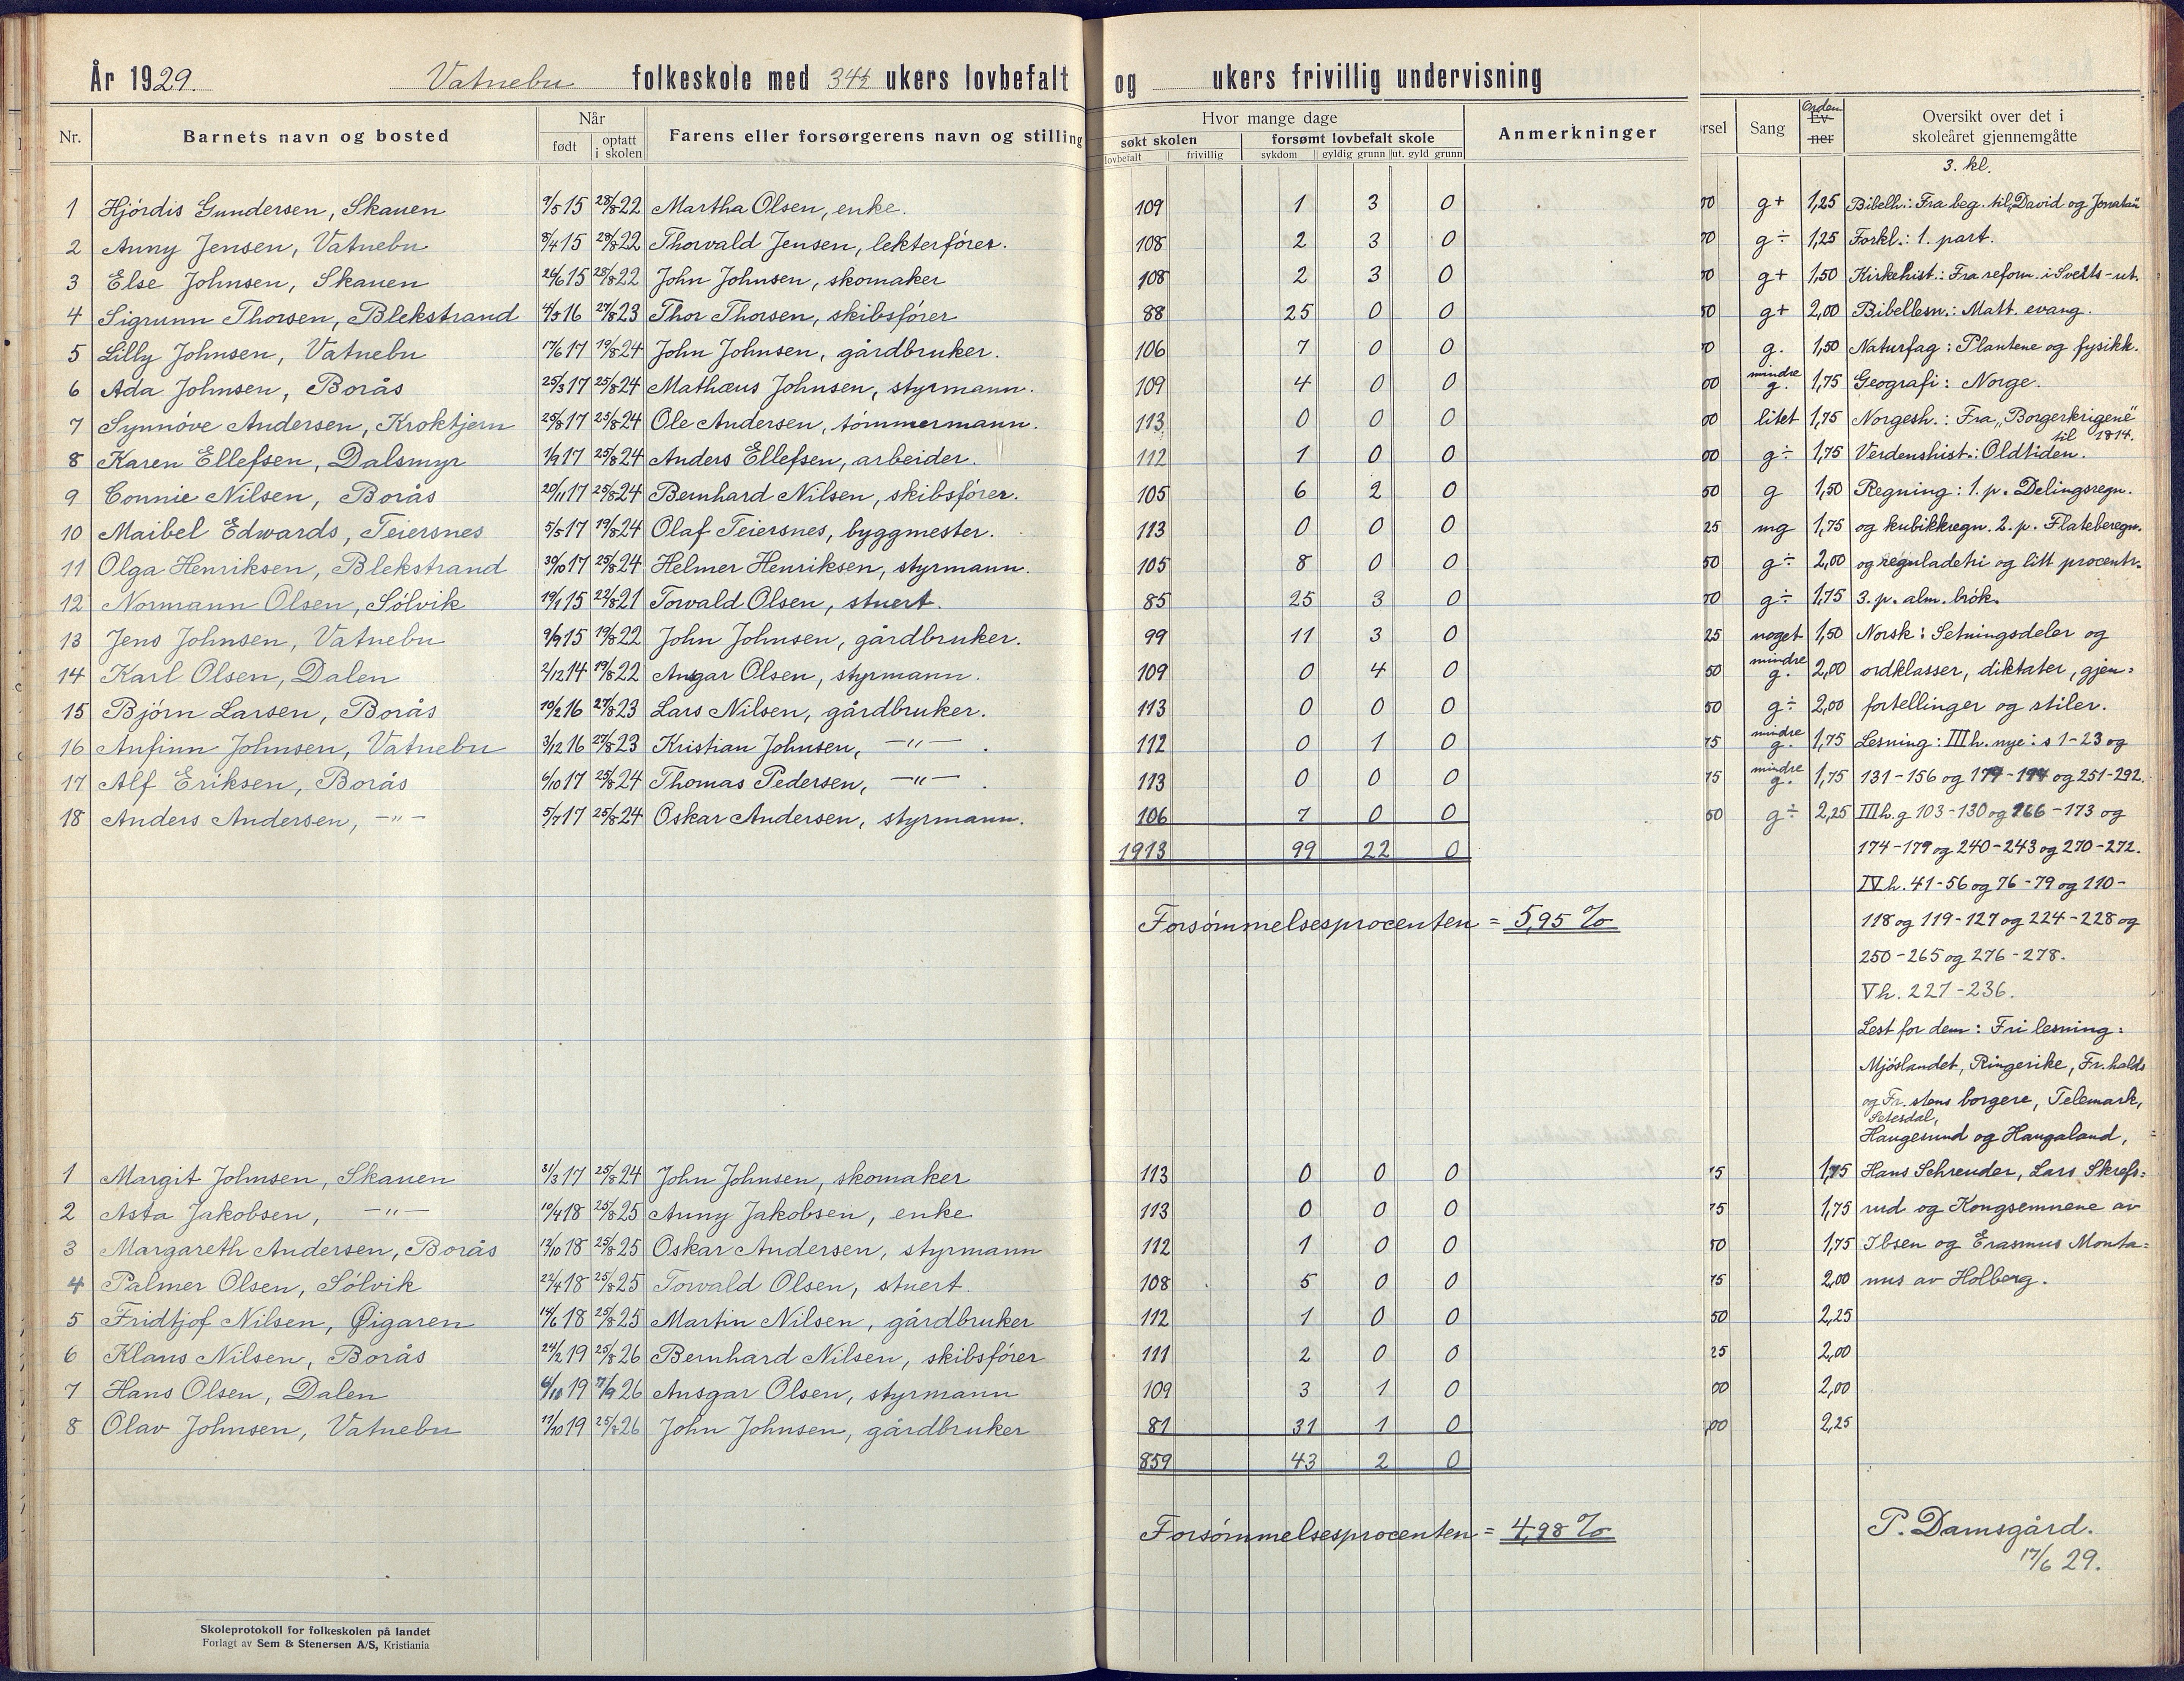 År 1929. Vatnebu folkeskole med 34½ ukers lovbefalt og ukers frivillig undervisning
Nr. Barnets navn og bosted Når født optatt i skolen Farens eller forsørgerens navn og stilling
Hvor mange dage
søkt skolen forsømt lovbefalt skole Anmerkninger
lovbefalt frivillig sykdom gyldig grunn ut. gyld grunn
1 Hjórdis Gundersen, Skauen 9/5 15 28/8 22 Martha Olsen, enke. 109 1 3 0
2 Anny Jensen, Vatnebu 8/4 15 28/8 22 Thorvald Jensen, lekterfórer. 108 2 3 0
3 Else Johnsen, Skauen 26/6 15 28/8 22 John Johnsen, skomaker 108 2 3 0
4 Sigrunn Thorsen, Blekstrand 4/5 16 27/8 23 Thor Thorsen, skibsfórer 88 25 0 0
5 Lilly Johnsen, Vatnebu 17/6 17 19/8 24 John Johnsen, gårdbruker. 106 7 0 0
6 Ada Johnsen, Borås 25/3 17 25/8 24 Mathæus Johnsen, styrmann. 109 4 0 0
7 Synnóve Andersen, Kroktjern 25/8 17 25/8 24 Ole Andersen, tómmermann. 113 0 0 0
8 Karen Ellefsen, Dalsmyr 1/9 17 25/8 24 Anders Ellefsen, arbeider. 112 1 0 0
9 Connie Nilsen, Borås 20/11 17 25/8 24 Bernhard Nilsen, skibsfórer. 105 6 2 0
10 Maibel Edwards, Teiersnes 5/5 17 19/8 24 Olaf Teiersnes, byggmester. 113 0 0 0
11 Olga Henriksen, Blekstrand 30/10 17 25/8 24 Helmer Henriksen, styrmann. 105 8 0 0
12 Normann Olsen, Sólvik 19/1 15 22/8 21 Torvald Olsen, stuert. 85 25 3 0
13 Jens Johnsen, Vatnebu 9/9 15 19/8 22 John Johnsen, gårdbruker. 99 11 3 0
14 Karl Olsen, Dalen 2/12 14 19/8 22 Ansgar Olsen, styrmann. 109 0 4 0
15 Bjórn Larsen, Borås 10/2 16 27/8 23 Lars Nilsen, gårdbruker. 113 0 0 0
16 Anfinn Johnsen, Vatnebu 3/12 16 27/8 23 Kristian Johnsen, —"— . 112 0 1 0
17 Alf Eriksen, Borås 6/10 17 25/8 24 Thomas Pedersen, —"— . 113 0 0 0
18 Anders Andersen, —"— 5/7 17 25/8 24 Oskar Andersen, styrmann. 106 7 0 0
1913 99 22 0
Forsómmelsesprocenten = 5,95 %
1 Margit Johnsen, Skauen 31/3 17 25/8 24 John Johnsen, skomaker 113 0 0 0
2 Asta Jakobsen, —"— 10/4 18 25/8 25 Anny Jakobsen, enke 113 0 0 0
3 Margareth Andersen, Borås 12/10 18 25/8 25 Oskar Andersen, styrmann 112 1 0 0
4 Palmer Olsen, Sólvik 22/4 18 25/8 25 Torvald Olsen, stuert. 108 5 0 0
5 Fridtjof Nilsen, Øigaren 14/6 18 25/8 25 Martin Nilsen, gårdbruker 112 1 0 0
6 Klaus Nilsen, Borås 24/2 19 25/8 26 Bernhard Nilsen, skibsfórer 111 2 0 0
7 Hans Olsen, Dalen 6/10 19 7/9 26 Ansgar Olsen, styrmann 109 3 1 0
8 Olav Johnsen, Vatnebu 17/10 19 25/8 26 John Johnsen, gårdbruker 81 31 1 0
859 43 2 0
Forsómmelsesprocenten = 4,98 %
Skoleprotokoll for folkeskolen på landet
Forlagt av Sem & Stenersen A/S, Kristiania
rsel Sang Orden Ev-ner Oversikt over det i
skoleåret gjennemgåtte
3. kl.
00 g+ 1,25 Bibelh.: Fra beg. til „David og Jonatan"
00 g÷ 1,25 Forkl.: 1. part.
00 g+ 1,50 Kirkehist.: Fra reform. i Sveits - ut.
50 g+ 2,00 Bibellesn.: Matt. evang.
00 g. 1,50 Naturfag: Plantene og fysikk.
00 mindre g. 1,75 Geografi: Norge.
00 litet 1,75 Norgesh.: Fra „Borgerkrigene"
til 1814.
00 g÷ 1,75 Verdenshist.: Oldtiden.
50 g 1,50 Regning: 1. p. Delingsregn.
25 mg 1,75 og kubikkregn. 2. p. Flateberegn.
50 g÷ 2,00 og reguladetri og litt procentr.
00 g÷ 1,75 3. p. alm. brók.
25 noget 1,50 Norsk: Setningsdeler og
50 mindre g. 2,00 ordklasser, diktater, gjen=
50 g÷ 2,00 fortellinger og stiler.
75 mindre g. 1,75 Lesning: III h. nye: s 1-23 og
75 mindre g. 1,75 131-156 og og 251-292.
50 g÷ 2,25 III h. g 103-130 og 166-173 og
174-179 og 240-243 og 270-272.
IV h. 41-56 og 76-79 og 110-
118 og 119-127 og 224-228 og
250-265 og 276-278.
V h. 227-236.
Lest for dem: Fri lesning:
Mjóslandet, Ringerike, Fr.halds
og Fr. stens borgere, Telemark,
Setesdal,
Haugesund og Haugaland,
75 1,75 Hans Schreuder, Lars Skrefs=
75 1,75 rud og Kongsemnene av
50 1,75 Ibsen og Erasmus Monta=
75 2,00 nus av Holberg.
50 2,25
25 2,00
00 2,00
00 2,25
P. Damsgård.
17/6 29.